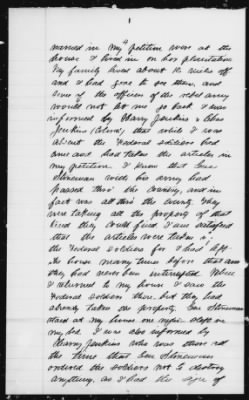 named in my petition were at the
house I lived in on her plantation
My family lived about 12 miles off
and I had gone to see them, and
some of the officers of the rebel army
would not let me go back I was
informed by Harry Jenkins &
Jenkins (Col'rd) that while I was
absent the Federal soldiers had
come and had taken the articles in
my petition I knew that Gen
Stoneman with his army had
passed thro' the country, and in
fact was all thro' the county. They
were taking all the property of that
kind they could find. I am satisfied
that the articles were taken by
the Federal soldiers for I had left
the house many times before that and
they had never been interrupted. When
I returned to my house I saw the
Federal soldiers there, but they had
already taken the property. Gen Stoneman
staid at my house one night slept on
my bed. I was also informed by
Harry Jenkins who was there at
the time that Gen Stoneman
ordered the soldiers not to destroy
anything, as I had the sign of